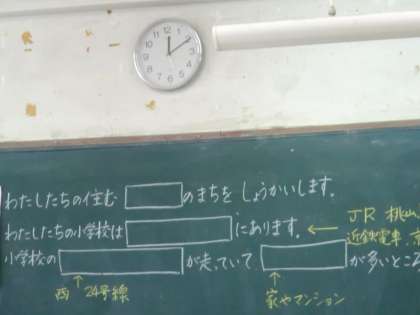 わたしたちの住む　　のまちを しょうかいします。
わたしたちの小学校は　　にあります。← JR 桃山
近鉄電車、京
小学校の　　が走っていて、　　が多いところ
↑
西 24号線
↑
家やマンション